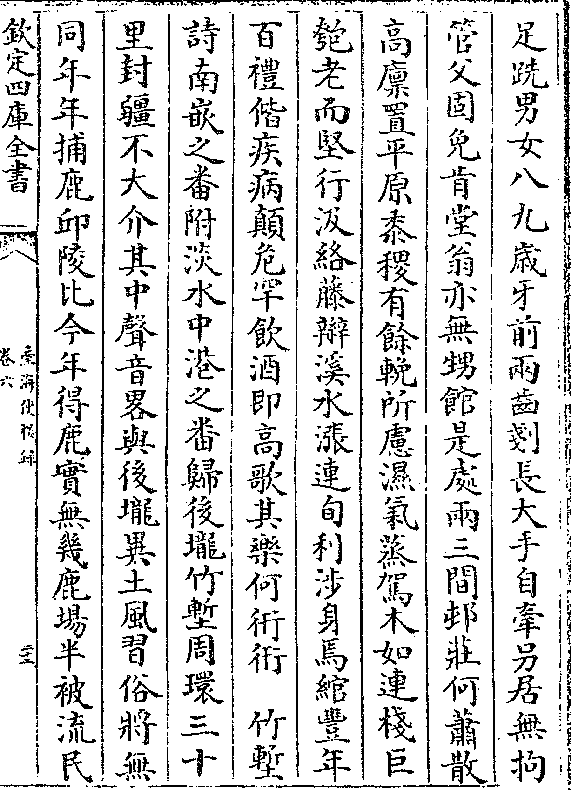 足跣男女八九歲牙前兩齒剗長大手自牽另居無拘
管父固免肯堂翁亦無甥館是處兩三間邨莊何蕭散
高廪置平原黍稷有餘輓所慮濕氣蒸駕木如連棧巨
匏老而堅行汲絡藤辮溪水漲連旬利涉身焉綰豐年
百禮偕疾病顛危罕飲酒即高歌其樂何衎衎　竹塹
詩南嵌之番附淡水中港之番歸後壠竹塹周環三十
里封疆不大介其中聲音畧與後壠異土風習俗將無
同年年捕鹿邱陵比今年得鹿實無幾鹿塲半被流民
欽定四庫全書
臺海使槎錄
卷六